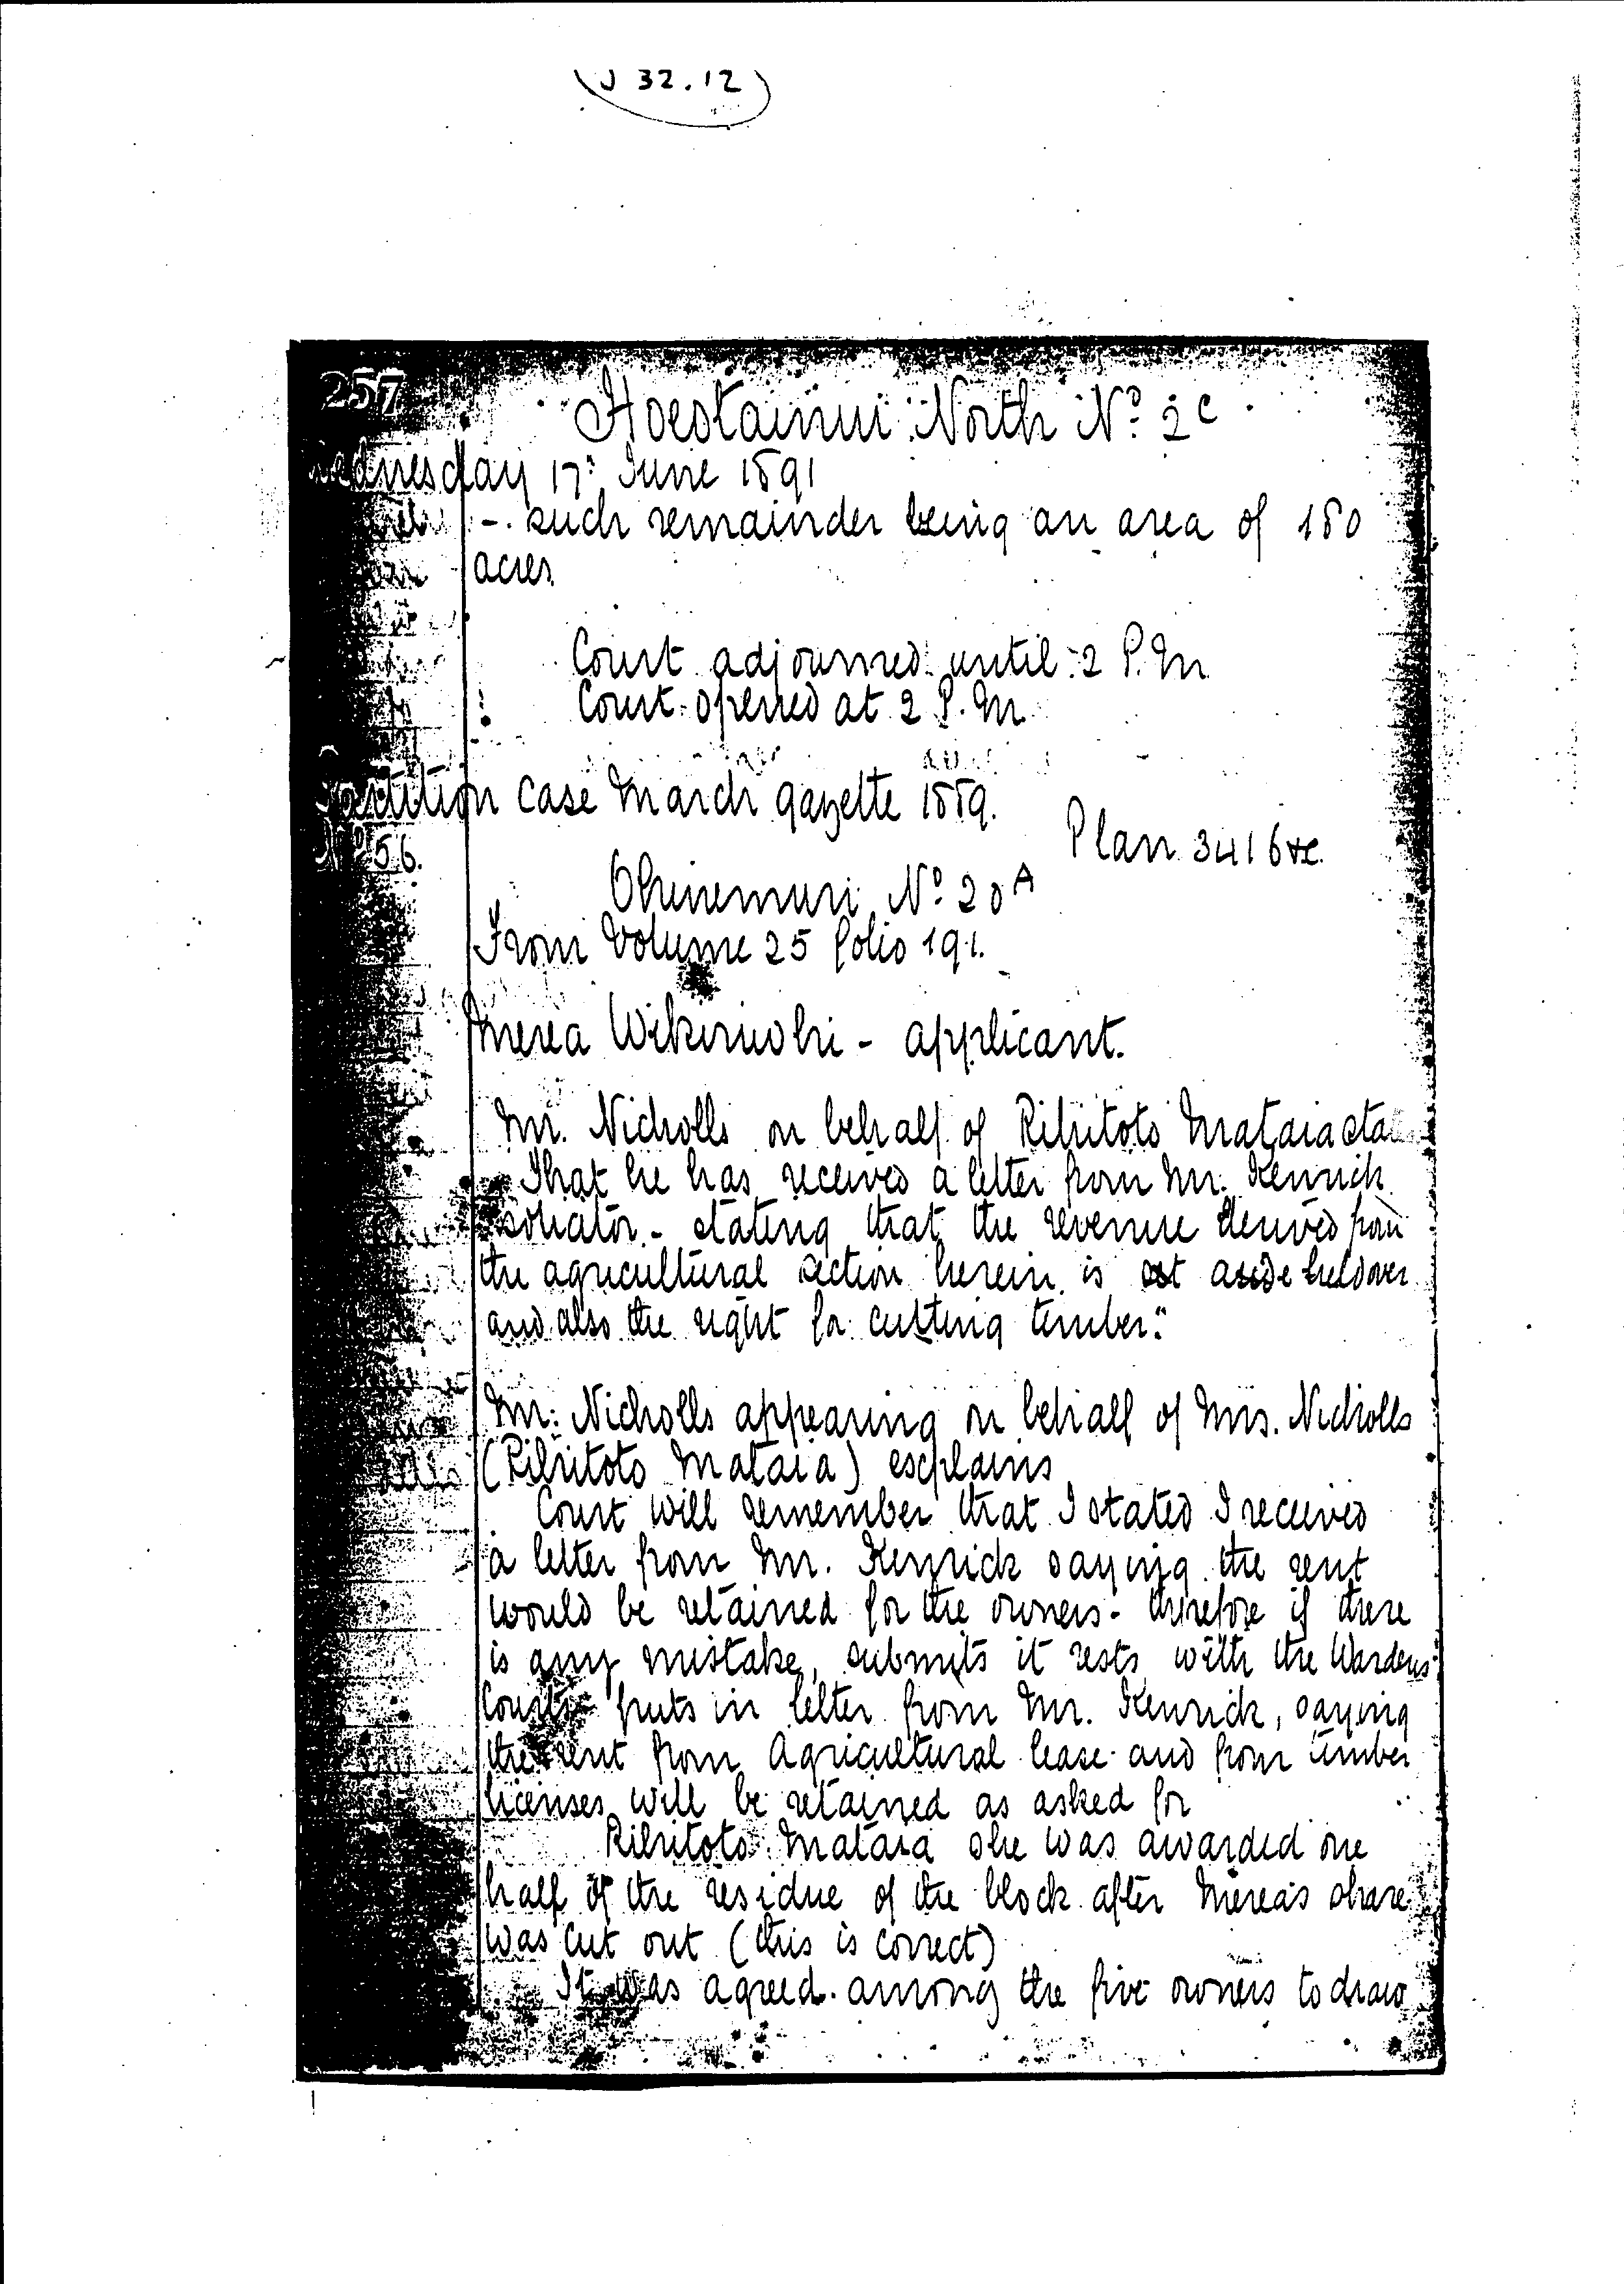 J 32.12
257
Hoeotainui North No. 2C
Wednesday 17: June 1891
-. such remainder being an area of 180
acres
Court adjourned until 2 P.M
Court opened at 2 P.M
Partition case March gazette 1889.
No 56.
Plan 3416 &c.
Ohinemuri No. 20A
From Volume 25 folio 191.
Merea Wikiriwhi - applicant.
Mr. Nicholls on behalf of Rihitoto Mataia sta
That he has received a letter from Mr. Kenrick
- stating that the revenue derived from
the agricultural section herein is set aside held over
and also the right for cutting timber."
Mr: Nicholls appearing on behalf of Mrs. Nicholls
(Rihitoto Mataia) explains
Court will remember that I stated I received
a letter from Mr. Kenrick saying the rent
would be retained for the owners - therefore if there
is any mistake, submits it rests with the Wardens
Court - puts in letter from Mr. Kenrick, saying
the rent from Agricultural lease and from timber
licenses will be retained as asked for
Rihitoto Mataia she was awarded one
half of the residue of the block after Merea's share
was cut out (this is correct)
It was agreed among the five owners to draw